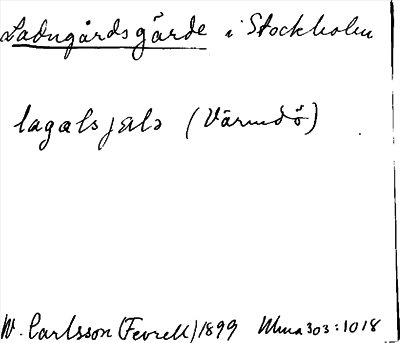 Ladugårdsgärde i Stockholm
lagalsjæla (Värmdö)
W. Carlsson (Fevrell) 1899 Uma 303:1018